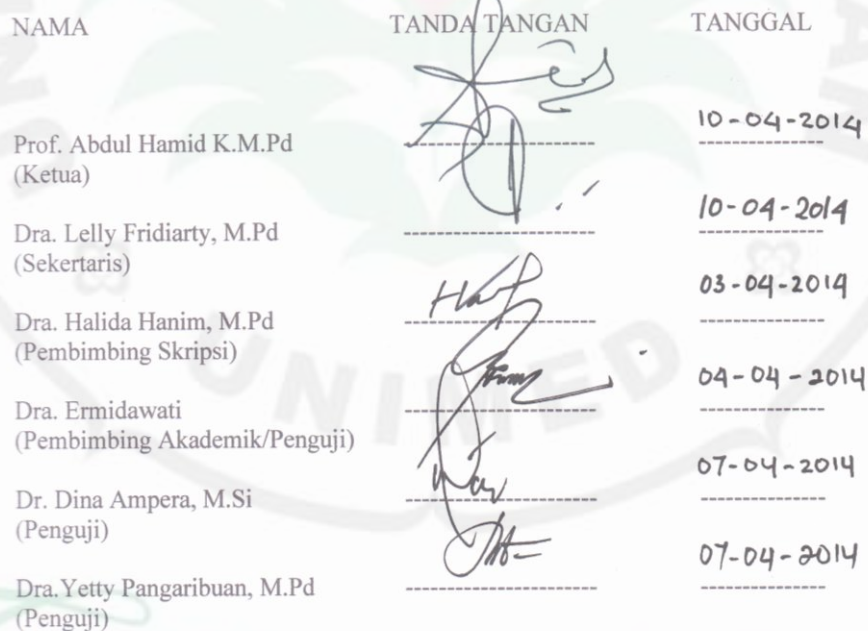 NAMA TANDA TANGAN TANGGAL
10-04-2014
Prof. Abdul Hamid K.M.Pd
(Ketua)
10-04-2014
Dra. Lelly Fridiarty, M.Pd
(Sekertaris)
03-04-2014
Dra. Halida Hanim, M.Pd
(Pembimbing Skripsi)
04-04-2014
Dra. Ermidawati
(Pembimbing Akademik/Penguji)
07-04-2014
Dr. Dina Ampera, M.Si
(Penguji)
07-04-2014
Dra.Yetty Pangaribuan, M.Pd
(Penguji)
UNIMED